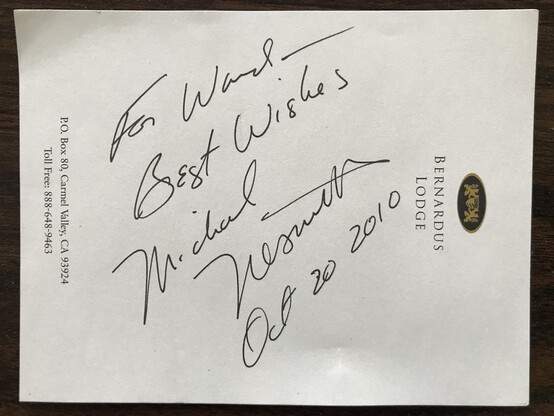 BERNARDUS
LODGE
For Ward
Best Wishes
Michael
Nesmith
Oct 20 2010
P.O. Box 80, Carmel Valley, CA 93924
Toll Free: 888-648-9463